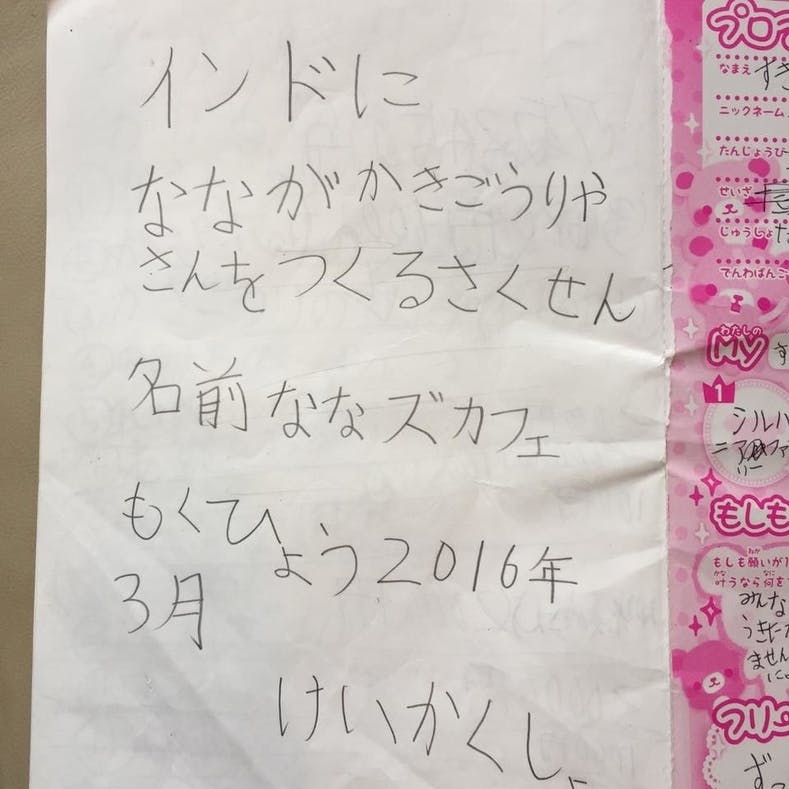 インドに
ななががきごうりや
さんをつくるさくせん
名前ななズカフェ
もくひょう2016年
3月
けいかくしょ
プロフ
なまえ
ニックネーム
たんじょうび
せいざ
じゅうしょ
でんわばんご
わたしの
MY
1
シルバ
ニアファ
リー
もしも
もしも願いが1
叶うなら何を
みんな
ません
フリー